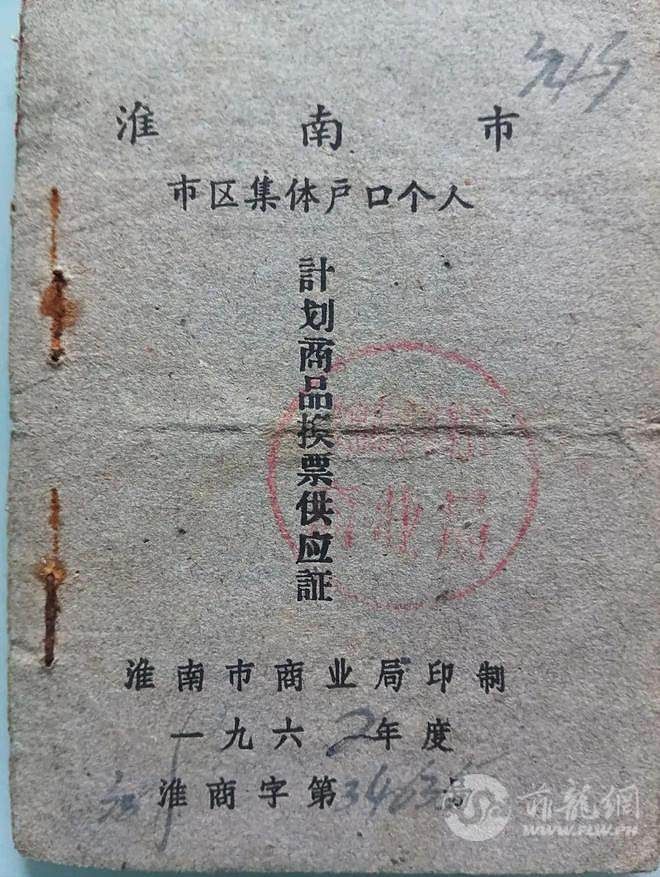 淮南市
市区集体户口个人
計划商品换票供应証
淮南市商业局印制
一九六2年度
淮商字第号
菲龍網
WWW.FLW.PH